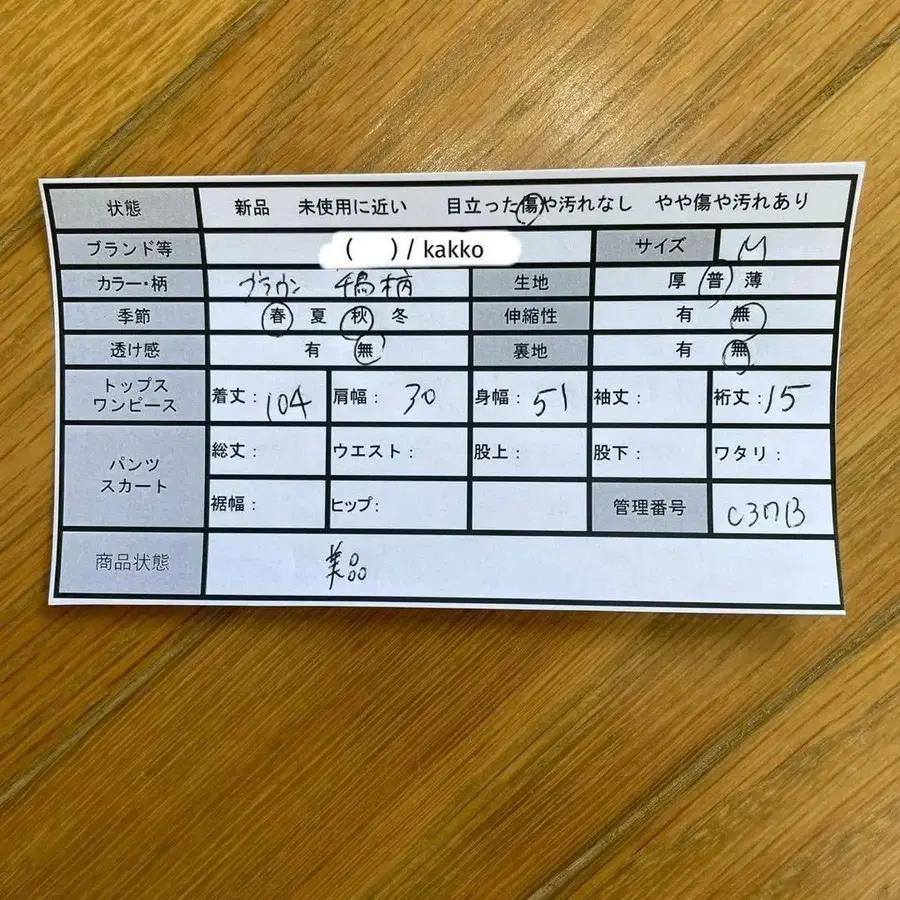 状態 新品 未使用に近い 目立った傷や汚れなし やや傷や汚れあり
ブランド等 ( ) / kakko サイズ M
カラー・柄 ブラウン 千鳥柄 生地 厚 普 薄
季節 春 夏 秋 冬 伸縮性 有 無
透け感 有 無 裏地 有 無
トップス ワンピース 着丈: 104 肩幅: 30 身幅: 51 袖丈: 裄丈: 15
パンツ スカート 総丈: ウエスト: 股上: 股下: ワタリ:
裾幅: ヒップ: 管理番号 C37B
商品状態 美品